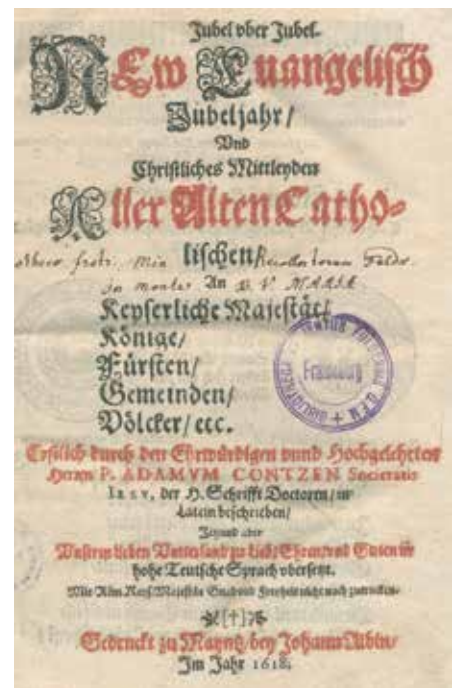 Jubel vber Jubel.
NEw Euangelisch
Jubeljahr/
Vnd
Christliches Mittleyden
Aller Alten Catho-
lischen/
An
Keyserliche Majestät/
Könige/
Fürsten/
Gemeinden/
Völcker/ etc.
Erstlich durch den Ehrwürdigen vnnd Hochgelehrten
Herrn P. ADAMVM CONTZEN Societatis
IESV, der H. Schrifft Doctoren/ in
Latein beschrieben/
Jetzund aber
Vnserm lieben Vatterland zu Lieb/ Ehren/ vnd Guten in
hohe Teutsche Sprach vbersetzt.
Mit Röm. Keys. Majestät Gnad vnd Freyheit nicht nach zutrucken.
[†]
Gedruckt zu Mayntz/ bey Johann Albin/
Im Jahr 1618.